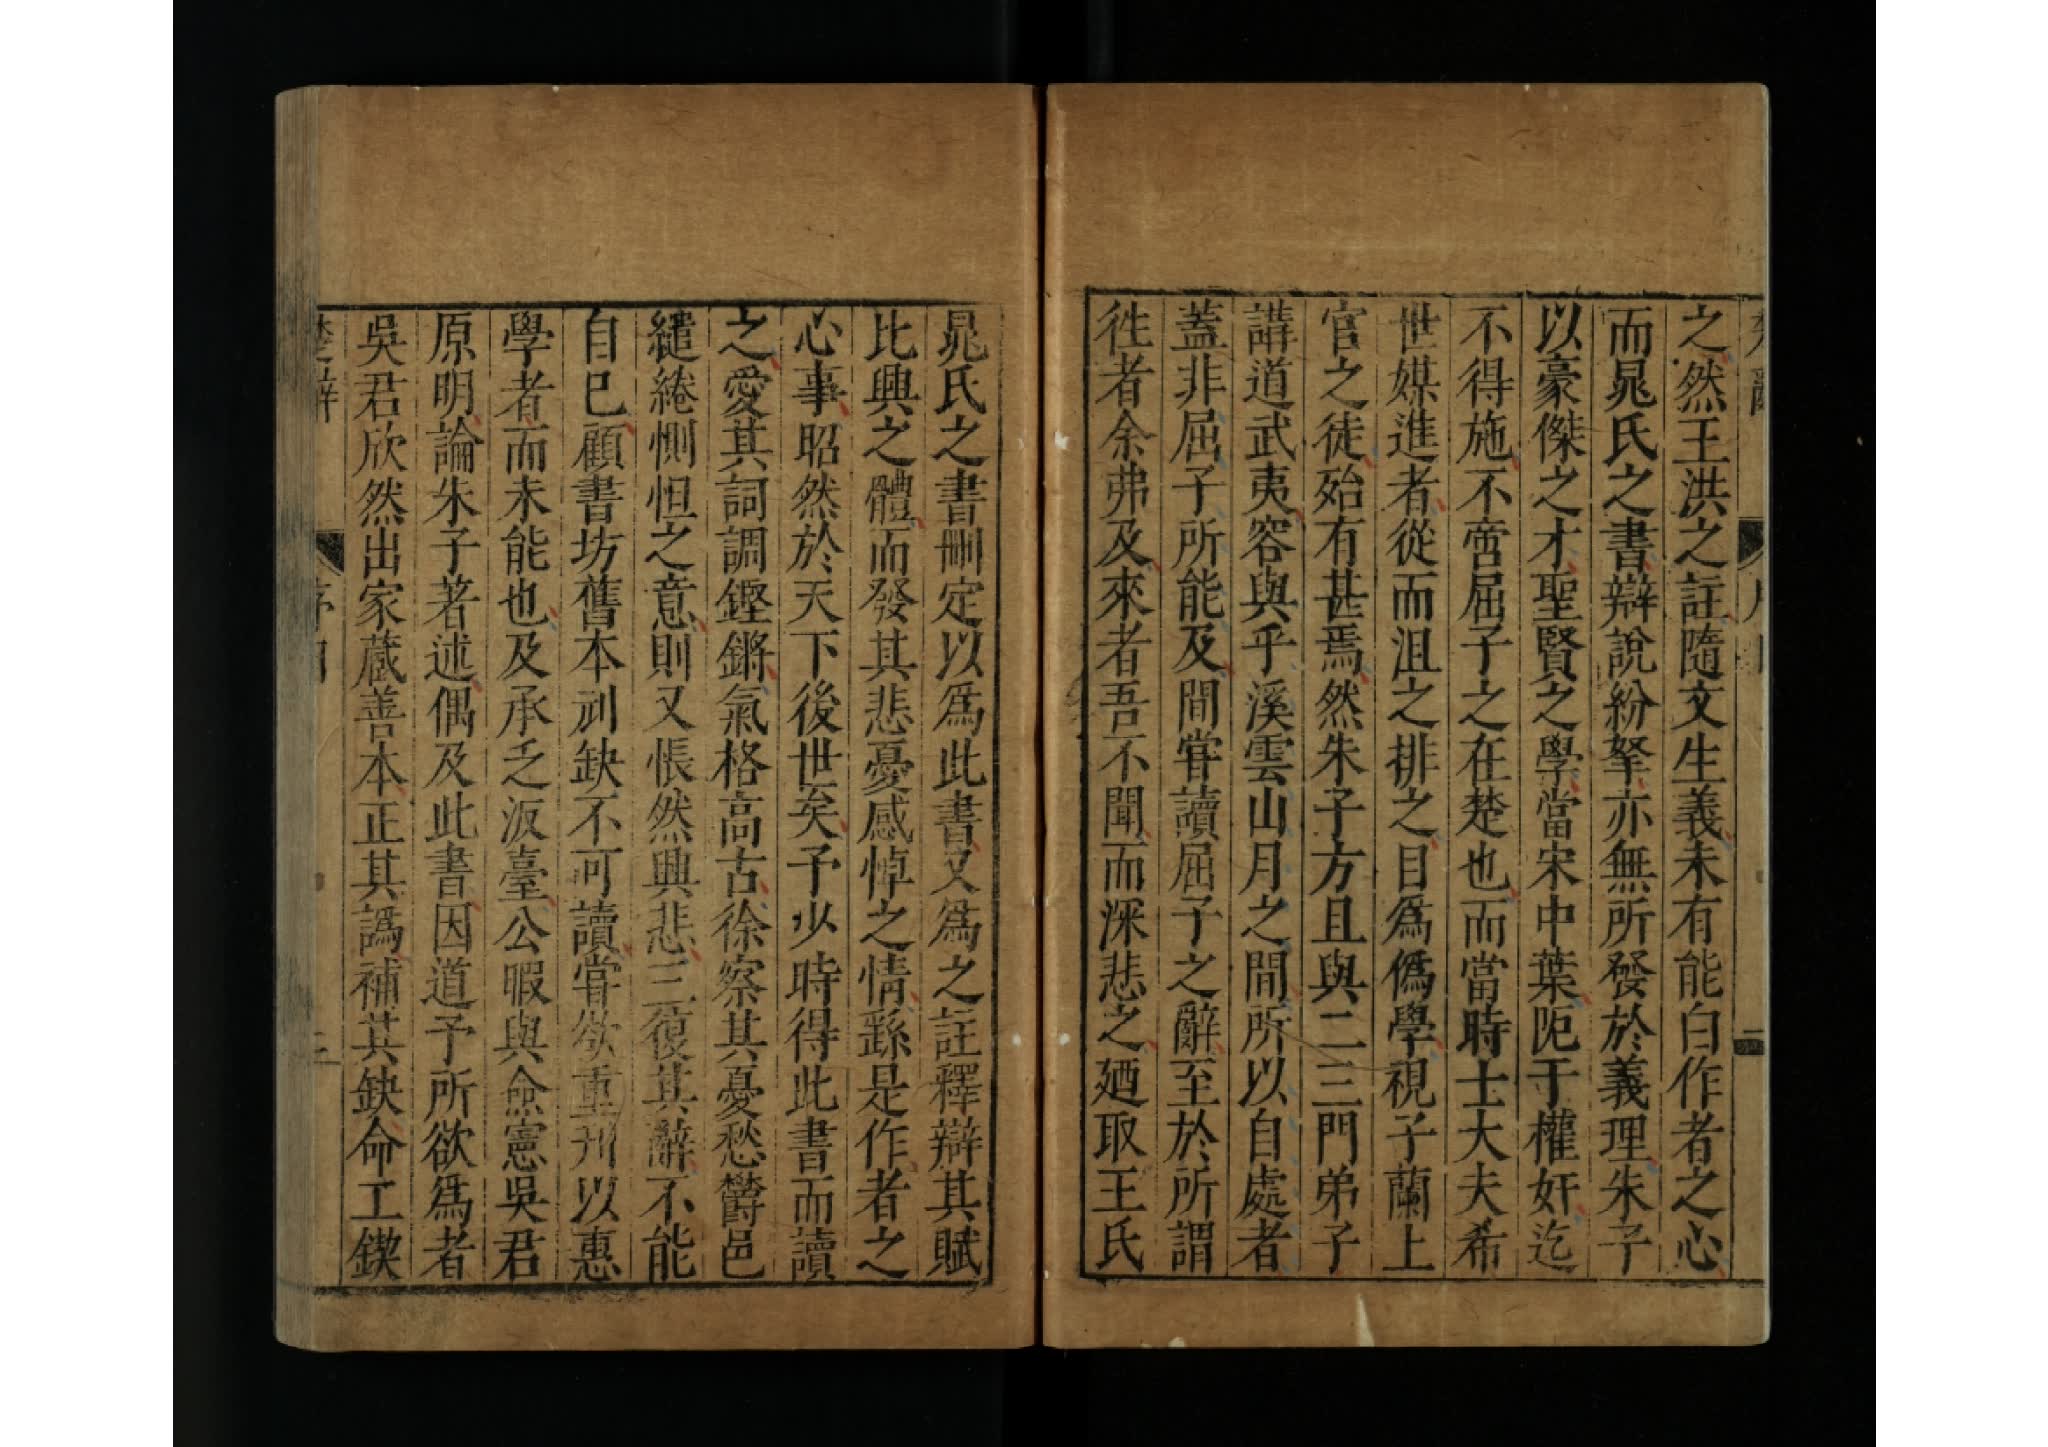 之然王洪之註隨文生義未有能白作者之心
而晁氏之書辯說紛拏亦無所發於義理朱子
以豪傑之才聖賢之學當宋中葉阨于權奸迄
不得施不啻屈子之在楚也而當時士大夫希
世媒進者從而沮之排之目爲僞學視子蘭上
官之徒殆有甚焉然朱子方且與二三門弟子
講道武夷容與乎溪雲山月之間所以自處者
蓋非屈子所能及間嘗讀屈子之辭至於所謂
徃者余弗及來者吾不聞而深悲之廼取王氏
晁氏之書刪定以爲此書又爲之註釋辯其賦
比興之體而發其悲憂感悼之情繇是作者之
心事昭然於天下後世矣予少時得此書而讀
之愛其詞調鏗鏘氣格高古徐察其憂愁鬱邑
繾綣惻怛之意則又悵然興悲三復其辭不能
自已顧書坊舊本刓缺不可讀嘗欲重刊以惠
學者而未能也及承乏汳臺公暇與僉憲吳君
原明論朱子著述偶及此書因道予所欲爲者
吳君欣然出家藏善本正其譌補其缺命工鍥
楚辭
序